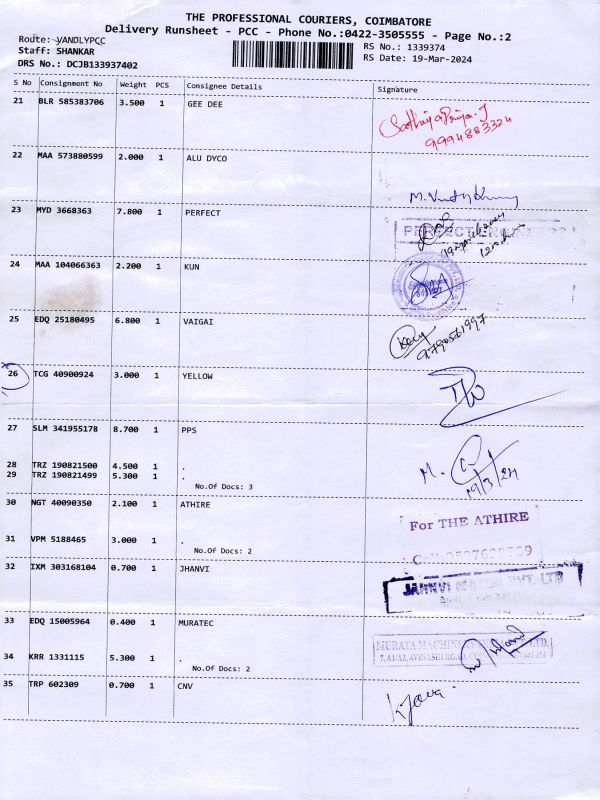 THE PROFESSIONAL COURIERS, COIMBATORE
Delivery Runsheet - PCC - Phone No.:0422-3505555 - Page No.:2
Route: VANDLYPCC
RS No.: 1339374
Staff: SHANKAR
RS Date: 19-Mar-2024
DRS No.: DCJB133937402
S No Consignment No Weight PCS Consignee Details Signature
21 BLR 585383706 3.500 1 GEE DEE
9994883324
22 MAA 573880599 2.000 1 ALU DYCO
23 MYD 3668363 7.800 1 PERFECT
PERFECT ENGINEERS
24 MAA 104066363 2.200 1 KUN
25 EDQ 25180495 6.800 1 VAIGAI
26 TCG 40900924 3.000 1 YELLOW
27 SLM 341955178 8.700 1 PPS
28 TRZ 190821500 4.500 1 .
29 TRZ 190821499 5.300 1 .
No.Of Docs: 3
19/3/24
30 NGT 40090350 2.100 1 ATHIRE
For THE ATHIRE
31 VPM 5188465 3.000 1 .
No.Of Docs: 2
32 IXM 303168104 0.700 1 JHANVI
33 EDQ 15005964 0.400 1 MURATEC
MURATA MACHINERY LTD.
34 KRR 1331115 5.300 1 .
7, A1/A2, AVINASHI ROAD,
No.Of Docs: 2
35 TRP 602309 0.700 1 CNV